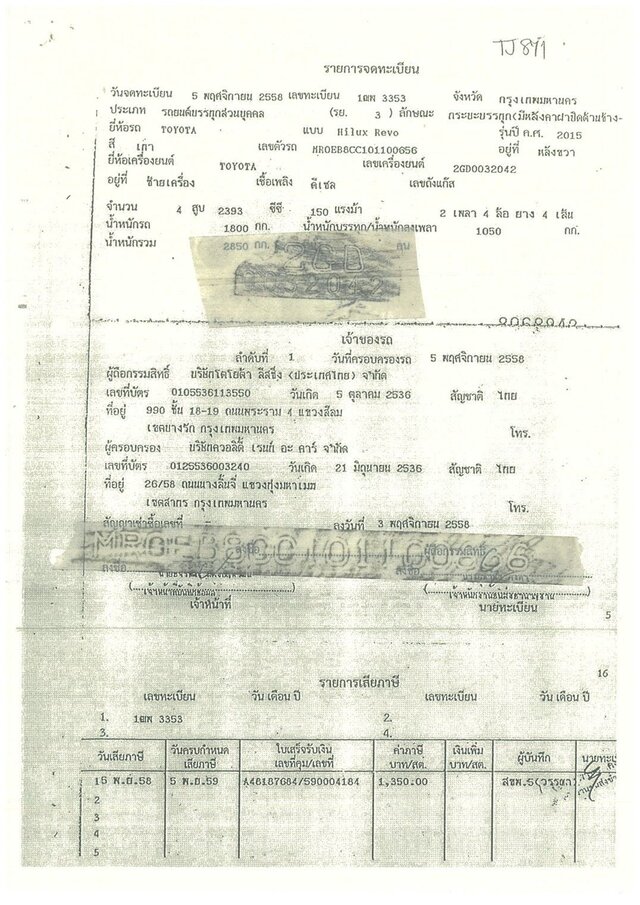 TJ 871
รายการจดทะเบียน
วันจดทะเบียน 5 พฤศจิกายน 2558 เลขทะเบียน 1ฒพ 3353 จังหวัด กรุงเทพมหานคร
ประเภท รถยนต์บรรทุกส่วนบุคคล (รย. 3 ) ลักษณะ กระบะบรรทุก(มีหลังคาฝาปิดด้านข้าง-
ยี่ห้อรถ TOYOTA แบบ Hilux Revo รุ่นปี ค.ศ. 2015
สี เทา เลขตัวรถ MR0EB8CC101100656 อยู่ที่ หลังขวา
ยี่ห้อเครื่องยนต์ TOYOTA เลขเครื่องยนต์ 2GD0032042
อยู่ที่ ซ้ายเครื่อง เชื้อเพลิง ดีเซล เลขถังแก๊ส
จำนวน 4 สูบ 2393 ซีซี 150 แรงม้า 2 เพลา 4 ล้อ ยาง 4 เส้น
น้ำหนักรถ 1800 กก. น้ำหนักบรรทุก/น้ำหนักลงเพลา 1050 กก.
น้ำหนักรวม 2850 กก. ที่นั่ง คน
เจ้าของรถ
ลำดับที่ 1 วันที่ครอบครองรถ 5 พฤศจิกายน 2558
ผู้ถือกรรมสิทธิ์ บริษัทโตโยต้า ลีสซิ่ง (ประเทศไทย) จำกัด
เลขที่บัตร 0105536113550 วันเกิด 5 ตุลาคม 2536 สัญชาติ ไทย
ที่อยู่ 990 ชั้น 18-19 ถนนพระราม 4 แขวงสีลม
เขตบางรัก กรุงเทพมหานคร โทร.
ผู้ครอบครอง บริษัทควอลิตี้ เรนท์ อะ คาร์ จำกัด
เลขที่บัตร 0125536003240 วันเกิด 21 มิถุนายน 2536 สัญชาติ ไทย
ที่อยู่ 26/58 ถนนนางลิ้นจี่ แขวงทุ่งมหาเมฆ
เขตสาทร กรุงเทพมหานคร โทร.
สัญญาเช่าซื้อเลขที่ ลงวันที่ 3 พฤศจิกายน 2558
ลงชื่อ ผู้ถือกรรมสิทธิ์
ลงชื่อ ลงชื่อ
เจ้าหน้าที่ นายทะเบียน
5
16
รายการเสียภาษี
เลขทะเบียน วัน เดือน ปี เลขทะเบียน วัน เดือน ปี
1. 1ฒพ 3353 2.
3. 4.
วันเสียภาษี วันครบกำหนดเสียภาษี ใบเสร็จรับเงิน เลขที่คุม/เลขที่ ค่าภาษี บาท/สต. เงินเพิ่ม บาท/สต. ผู้บันทึก
1 5 พ.ย.58 5 พ.ย.59 A48187684/590004184 1,350.00
2
3
4
5